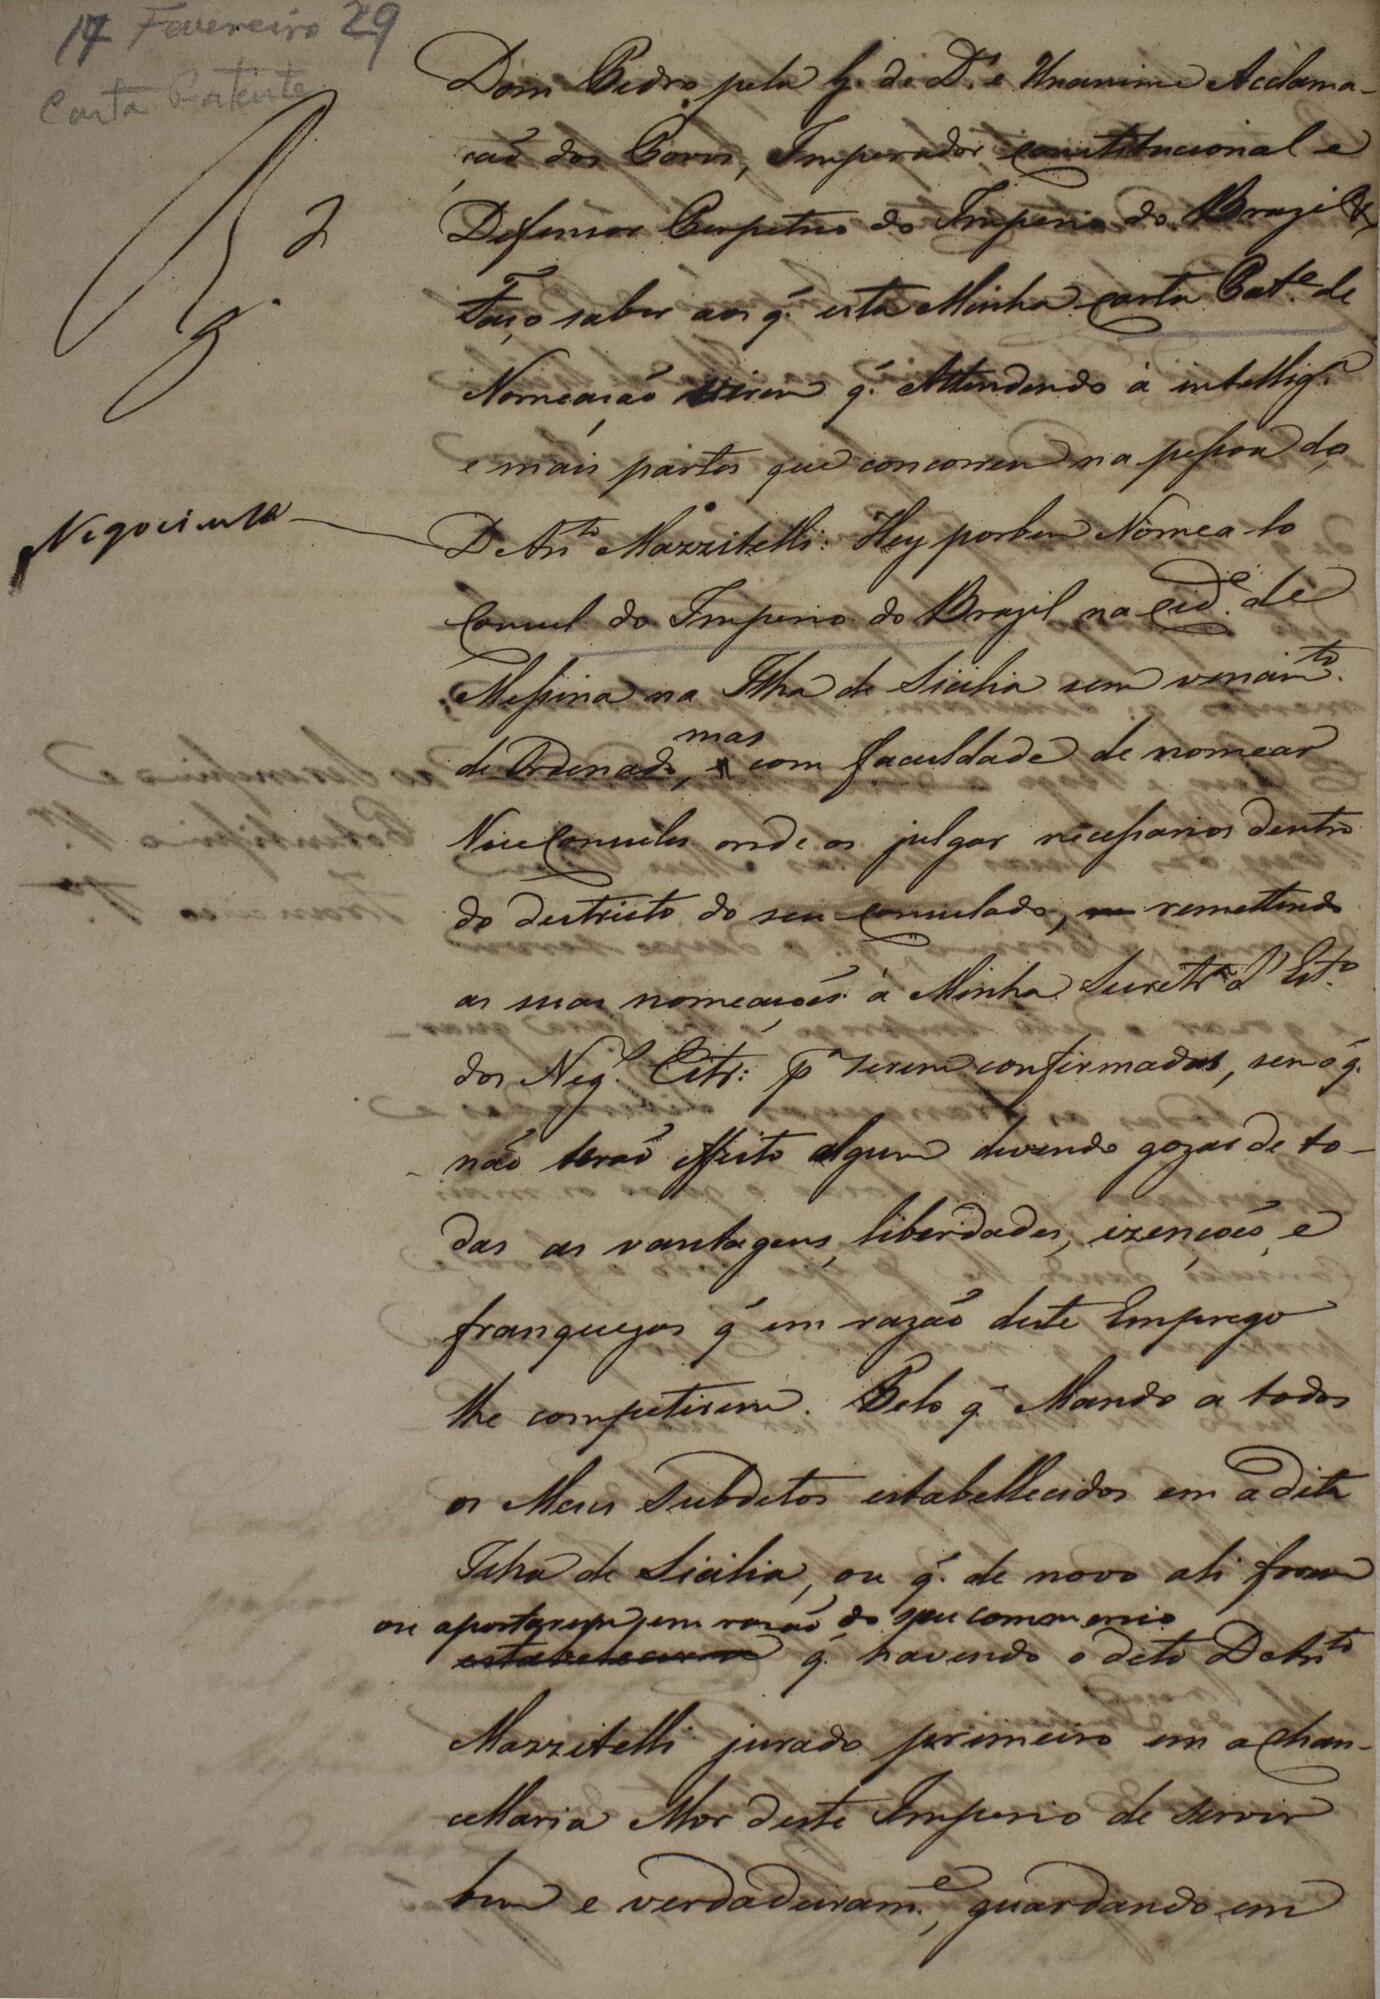 17 Fevereiro 29
Carta Patente
Dom Pedro pela G. de D.s e Unanime Acclama-
ção dos Povos, Imperador constitucional e
Defensor Perpetuo do Imperio do Brazil &
Faço saber aos q. esta Minha carta Pat.e de
Nomeação virem q. Attendendo á intellig.a
e mais partes que concorrem na pessoa do
Negociante
D Ant.o Mazzitelli: Hey porbem Nomea lo
Consul do Imperio do Brazil na Cid.e de
Messina na Ilha de Sicilia sem vencim.to
de Ordenado, mas com faculdade de nomear
Vice Consules onde os julgar necessarios dentro
do destricto do seu consulado, remettendo
as suas nomeações á Minha Secretr.a d'Est.o
dos Neg.s Estr: p.a serem confirmados, sen o q.
não terão effeito algum devendo gozar de to-
das as vantagens, liberdades, izenções, e
franquezas q em razão deste Emprego
lhe competirem. Pelo q. Mando a todos
os Meus Subditos estabellecidos em a dita
Ilha de Sicilia, ou q. de novo ali forem
ou aportarem em razão do seu commercio
estabelecerem q. havendo o dito D Ant.to
Mazzitelli jurado primeiro em a Chan-
cellaria Mor deste Imperio de servir
bem e verdadeiram.e, guardando em